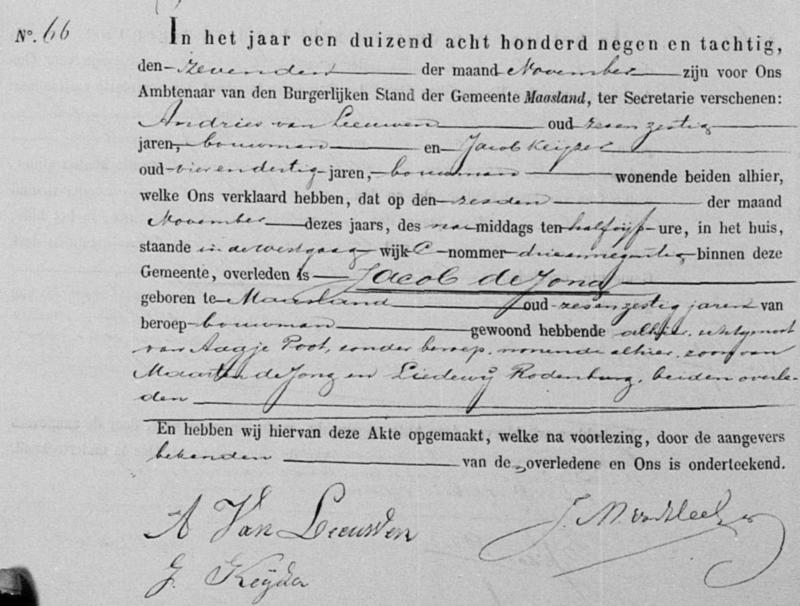 N°. 66
In het jaar een duizend acht honderd negen en tachtig,
den zevenden der maand November zijn voor Ons
Ambtenaar van den Burgerlijken Stand der Gemeente Maasland, ter Secretarie verschenen:
Andries van Leeuwen oud zesenzestig
jaren, bouwman en Jacob Keijzer
oud vierendertig jaren, bouwman wonende beiden alhier,
welke Ons verklaard hebben, dat op den zesden der maand
November dezes jaars, des voormiddags ten half vijf ure, in het huis,
staande in de westgaag wijk C nommer drieënnegentig binnen deze
Gemeente, overleden is Jacob de Jong
geboren te Maasland oud zesenzestig jaren van
beroep bouwman gewoond hebbende alhier, echtgenoot
van Aagje Poot, zonder beroep, wonende alhier, zoon van
Maarten de Jong en Liedewij Rodenburg, beiden overle-
den
En hebben wij hiervan deze Akte opgemaakt, welke na voorlezing, door de aangevers
bekenden van de overledene en Ons is onderteekend.
A Van Leeuwen
J. Keijzer